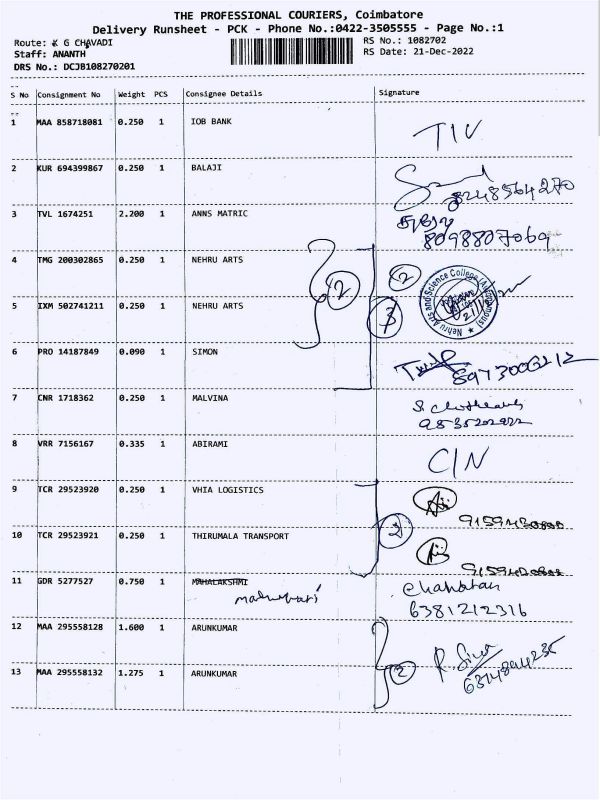 THE PROFESSIONAL COURIERS, Coimbatore
Delivery Runsheet - PCK - Phone No.:0422-3505555 - Page No.:1
Route: K G CHAVADI
RS No.: 1082702
Staff: ANANTH
RS Date: 21-Dec-2022
DRS No.: DCJB108270201
S No Consignment No Weight PCS Consignee Details Signature
1 MAA 858718081 0.250 1 IOB BANK
2 KUR 694399867 0.250 1 BALAJI
8248564270
3 TVL 1674251 2.200 1 ANNS MATRIC
8098807069
4 TMG 200302865 0.250 1 NEHRU ARTS
2 2
Nehru Arts and Science College (Autonomous)
5 IXM 502741211 0.250 1 NEHRU ARTS
3
6 PRO 14187849 0.090 1 SIMON
7 CNR 1718362 0.250 1 MALVINA
8 VRR 7156167 0.335 1 ABIRAMI
C/N
9 TCR 29523920 0.250 1 VHIA LOGISTICS
10 TCR 29523921 0.250 1 THIRUMALA TRANSPORT
2
11 GDR 5277527 0.750 1 MAHALAKSHMI
6381212316
12 MAA 295558128 1.600 1 ARUNKUMAR
R. Siva
13 MAA 295558132 1.275 1 ARUNKUMAR
2